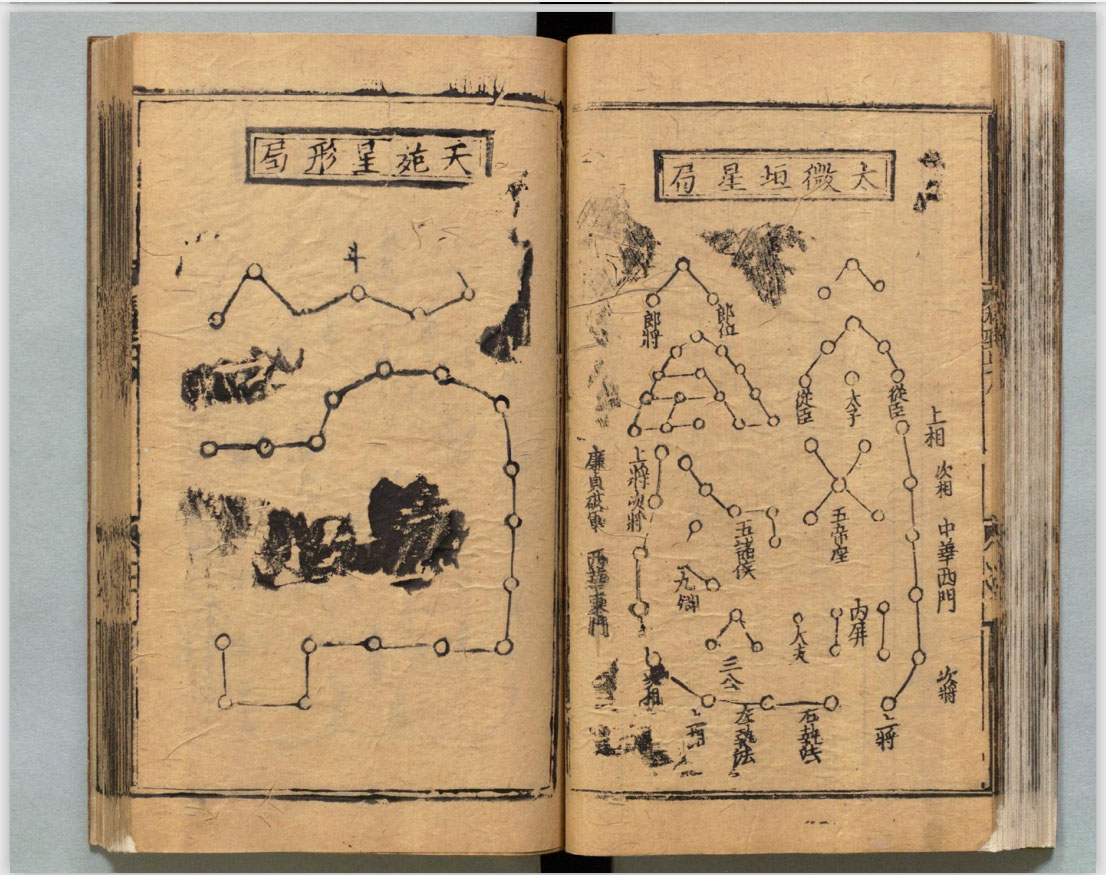 太微垣星局
郎位
郎將
從臣
太子
從臣
上相
次相
中華西門
次將
五帝座
内屏
五諸侯
九卿
三公
上將次將
次相
右執法
左執法
天苑星形局
斗